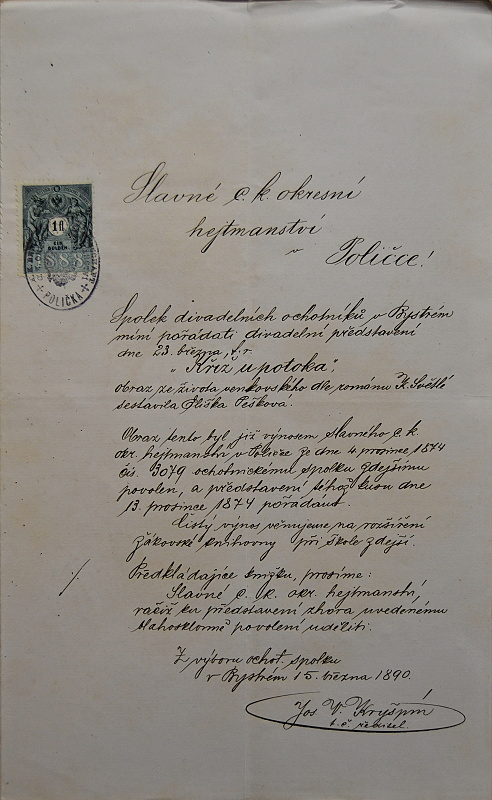 Slavné c. k. okresní
hejtmanství
v Poličce!
1 fl
EIN
GULDEN
888
POLIČKA
Spolek divadelních ochotníků v Bystrém
míní pořádati divadelní představení
dne 23. března, t. r.
„Kříž u potoka",
obraz ze života venkovského dle románu K. Světlé
sestavila Eliška Pešková.
Obraz tento byl již výnosem slavného c. k.
okr. hejtmanství v Poličce ze dne 4. prosince 1874
čís. 3079 ochotnickému spolku zdejšímu
povolen, a představení téhož kusu dne
13. prosince 1874 pořádáno.
Čistý výnos věnujeme na rozšíření
žákovské knihovny při škole zdejší.
Předkládajíce knížku, prosíme:
Slavné c. k. okr. hejtmanství,
račiž ku představení zhora uvedenému
blahosklonně povolení uděliti.
Z výboru ochot. spolku
v Bystrém 15. března 1890.
Jos V. Kryšpín
t. č. ředitel.